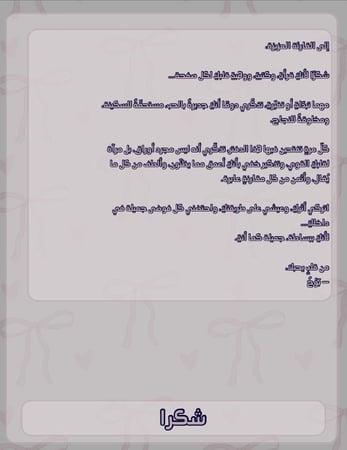 إلى القارئة العزيزة،
شكرًا لأنكِ قرأتِ، وكتبتِ، ووهبتِ قلبكِ لكل صفحة...
مهما تبدّلتِ أو تغيّرتِ، تذكّري دومًا أنكِ جديرةٌ بالحب، مستحقّةٌ للسكينة،
ومخلوقةٌ للنجاح.
كلّ مرةٍ تفتحين فيها هذا الدفتر، تذكّري أنه ليس مجرد أوراق، بل مرآة
لقلبكِ القوي، وتذكير خفي بأنكِ أعمق مما يظنّون، وألطف من كل ما
يُقال، وأثمن من كل مقارنةٍ عابرة.
اتركي أثركِ، وعيشي على طريقتكِ، واحتضني كل فوضى جميلة في
داخلكِ...
لأنكِ ببساطة، جميلة كما أنتِ.
من قلبٍ يحبك،
—
شكرا